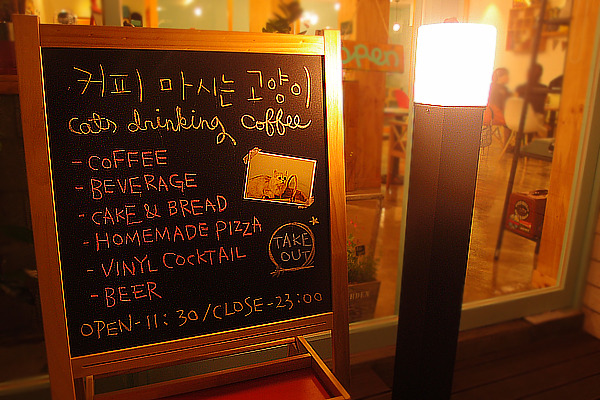 커피 마시는 고양이
cats drinking coffee
- COFFEE
- BEVERAGE
- CAKE & BREAD
- HOMEMADE PIZZA
- VINYL COCKTAIL
- BEER
TAKE
OUT
OPEN-11:30/CLOSE-23:00
open